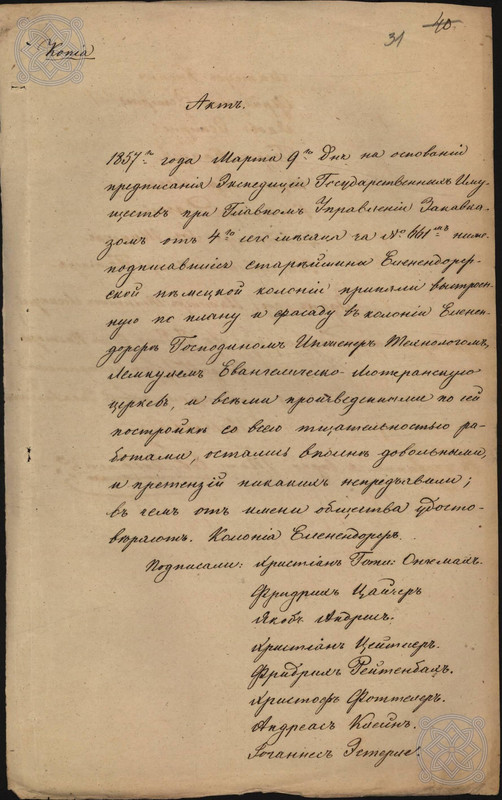 31 40.
Копія
Актъ.
1857го года Марта 9го Дня на основаніи
предписанія Экспедиціи Государственныхъ Иму-
ществъ при Главномъ Управленіи Закавка-
зомъ отъ 4го сего мѣсяца за № 661мъ ниже-
подписавшіеся старѣйшины Елененсдорф-
ской нѣмецкой колоніи приняли выстроен-
ную по плану и фасаду въ колоніи Еленен-
дорфъ Господиномъ Инженеръ Технологомъ,
Лемкулемъ Евангелическо-Лютеранскую
церковь, и всѣми произведенными по ей
постройкѣ со всею тщательностью ра-
ботами, остались вполнѣ довольными,
и претензій никакихъ непредъявили;
въ чемъ отъ имени общества удосто-
вѣряютъ. Колонія Елененсдорфъ.
Подписали: Христіанъ Готл:
Фридрихъ Цайсеръ
Якобъ Андрисъ.
Христіанъ Цейтлеръ.
Фридрихъ Рейтенбахъ.
Христофъ Фоттелеръ.
Андреасъ Клейнъ.
Іоганнесъ Эстерле.